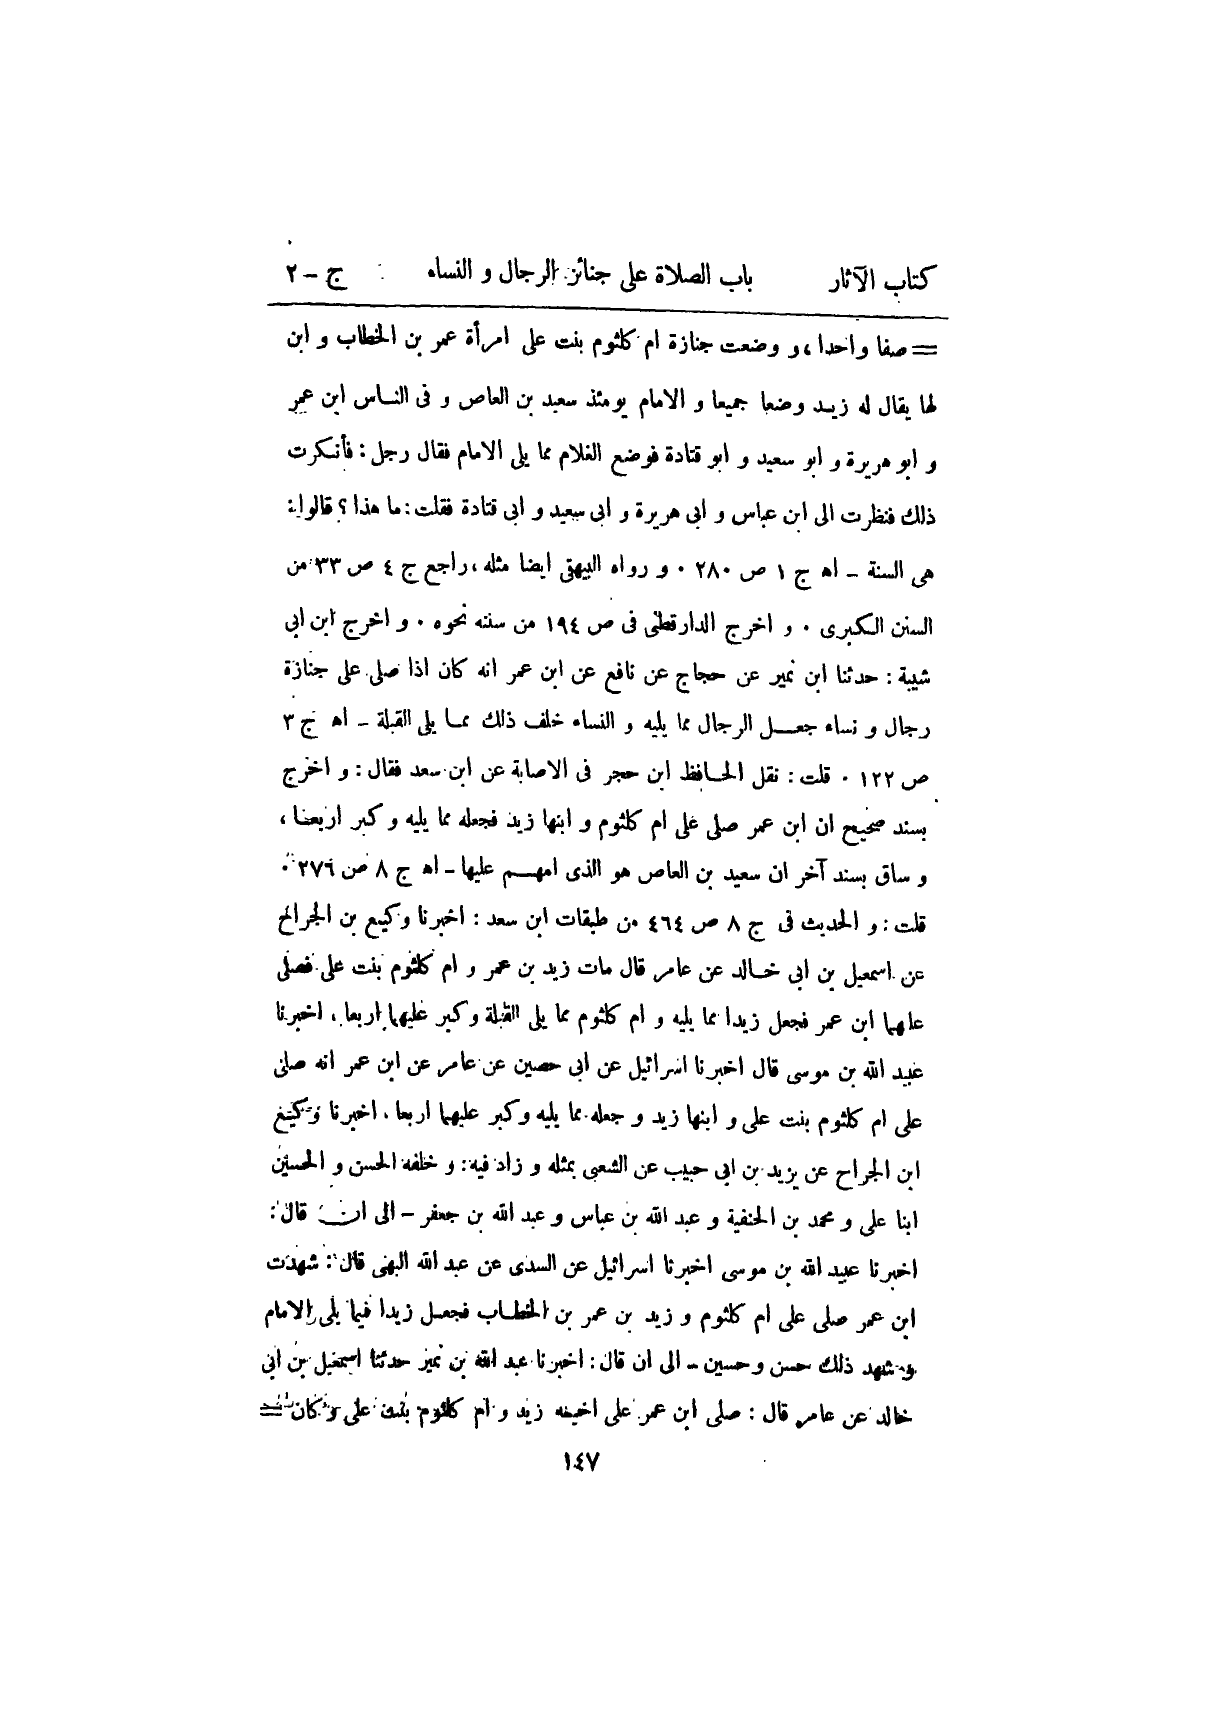 كتاب الآثار باب الصلاة على جنائز الرجال و النساء ج – ٢
= صفا واحدا ، و وضعت جنازة ام كلثوم بنت على امرأة عمر بن الخطاب و ابن
لها يقال له زيد وضعا جميعا و الامام يومئذ سعيد بن العاص و فى الناس ابن عمر
و ابو هريرة و ابو سعيد و ابو قتادة فوضع الغلام مما يلى الامام فقال رجل : فأنكرت
ذلك فنظرت الى ابن عباس و ابى هريرة و ابى سعيد و ابى قتادة فقلت : ما هذا ؟ قالوا :
هى السنة – اه ج ١ ص ٢٨٠ . و رواه البيهقى ايضا مثله ، راجع ج ٤ ص ٣٣ من
السنن الكبرى . و اخرج الدارقطنى فى ص ١٩٤ من سننه نحوه . و اخرج ابن ابى
شيبة : حدثنا ابن نمير عن حجاج عن نافع عن ابن عمر انه كان اذا صلى على جنازة
رجال و نساء جعل الرجال مما يليه و النساء خلف ذلك مما يلى القبلة – اه ج ٣
ص ١٢٢ . قلت : نقل الحافظ ابن حجر فى الاصابة عن ابن سعد فقال : و اخرج
بسند صحيح ان ابن عمر صلى على ام كلثوم و ابنها زيد فجعله مما يليه و كبر اربعا ،
و ساق بسند آخر ان سعيد بن العاص هو الذى امهم عليها – اه ج ٨ ص ٢٧٦ .
قلت : و الحديث فى ج ٨ ص ٤٦٤ من طبقات ابن سعد : اخبرنا وكيع بن الجراح
عن اسمعيل بن ابى خالد عن عامر قال مات زيد بن عمر و ام كلثوم بنت على فصلى
عليهما ابن عمر فجعل زيدا مما يليه و ام كلثوم مما يلى القبلة وكبر عليهما اربعا ، اخبرنا
عبيد الله بن موسى قال اخبرنا اسرائيل عن ابى حصين عن عامر عن ابن عمر انه صلى
على ام كلثوم بنت على و ابنها زيد و جعله مما يليه وكبر عليهما اربعا ، اخبرنا وكيع
ابن الجراح عن يزيد بن ابى حبيب عن الشعبى بمثله و زاد فيه : و خلفه الحسن و الحسين
ابنا على و محمد بن الحنفية و عبد الله بن عباس و عبد الله بن جعفر – الى ان قال :
اخبرنا عبيد الله بن موسى اخبرنا اسرائيل عن السدى عن عبد الله البهى قال : شهدت
ابن عمر صلى على ام كلثوم و زيد بن عمر بن الخطاب فجعل زيدا فيما يلى الامام
و شهد ذلك حسن و حسين – الى ان قال : اخبرنا عبد الله بن نمير حدثنا اسمعيل بن ابى
خالد عن عامر قال : صلى ابن عمر على اخيه زيد و ام كلثوم بنت على وكان =
١٤٧